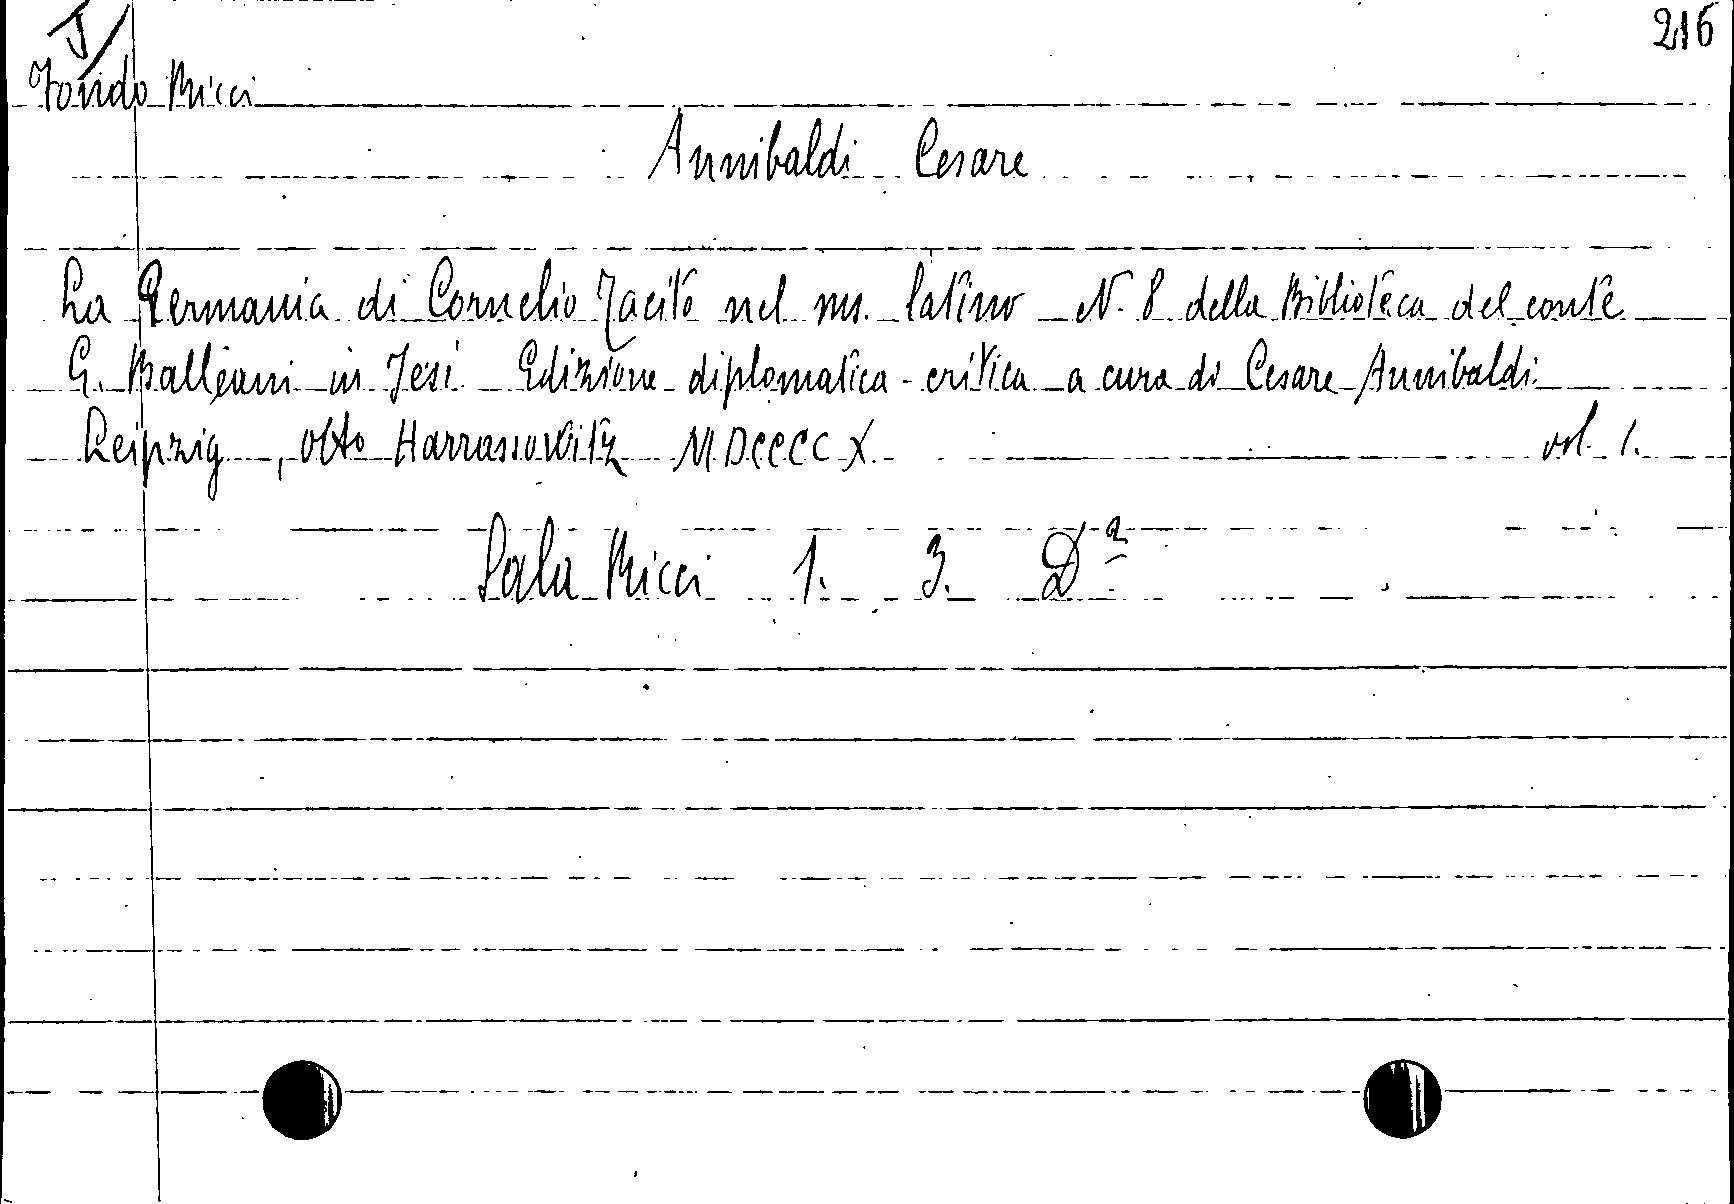 J/
216
Fondo Ricci
Annibaldi Cesare
La Germania di Cornelio Tacito nel ms. latino N. 8 della Biblioteca del conte
G. Balleani in Jesi Edizione diplomatica-critica a cura di Cesare Annibaldi.
Leipzig, Otto Harrassowitz MDCCCCX
vol. 1.
Sala Ricci 1. 3. Dª